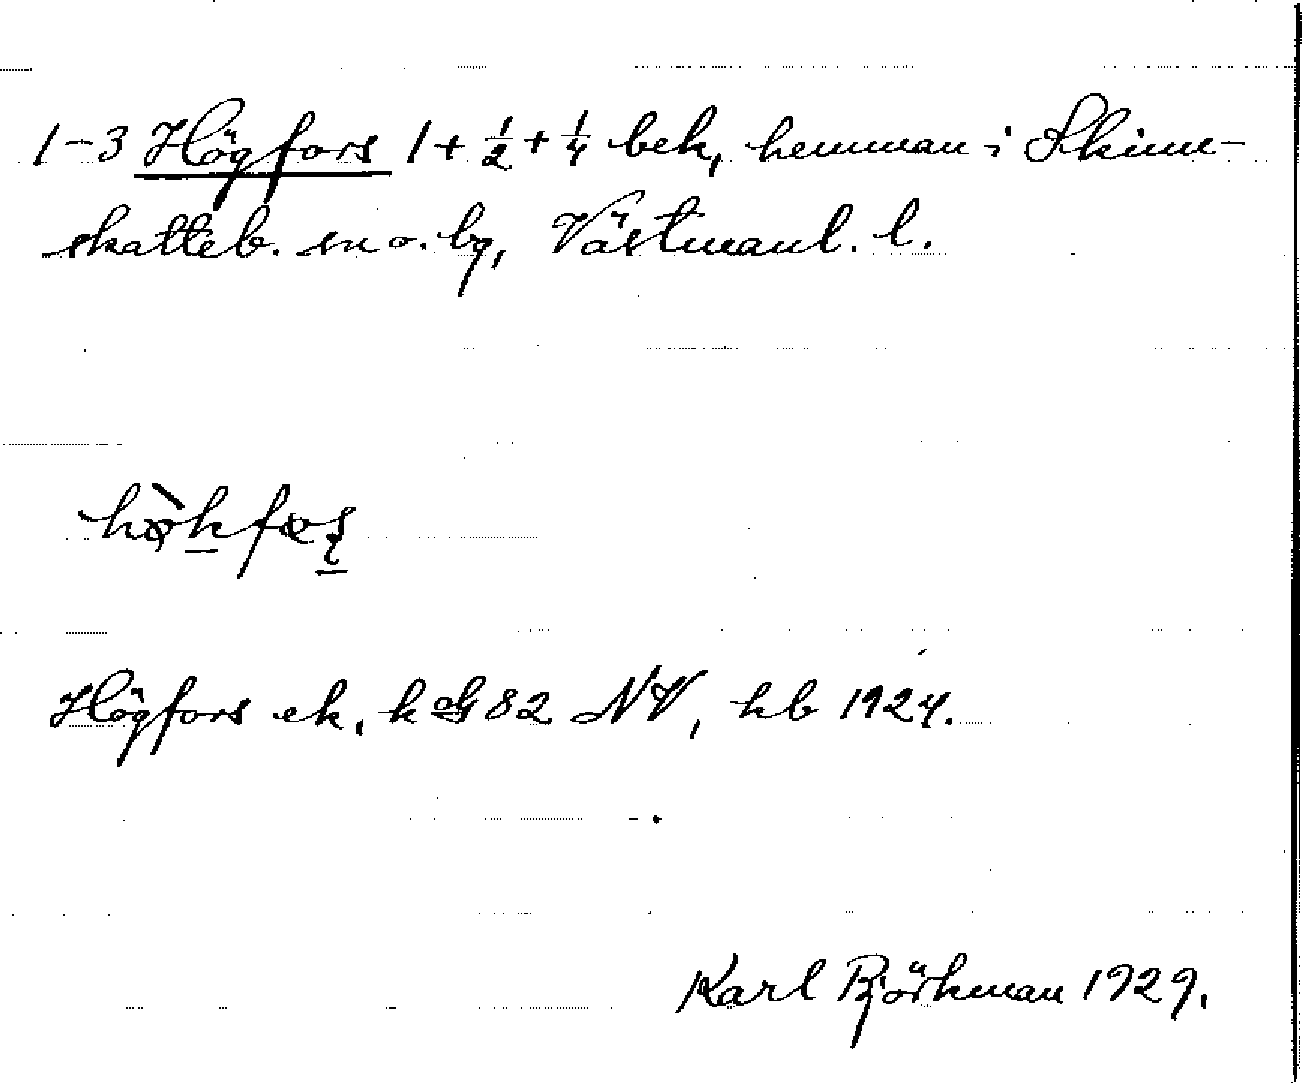 1-3 Högfors 1 + 1/2 + 1/4 bek, hemman i Skinn-
skatteb. sn o. bg, Västmanl. l.
Högfors ek, k 82 NV, hb 1924.
Karl Björkman 1929.